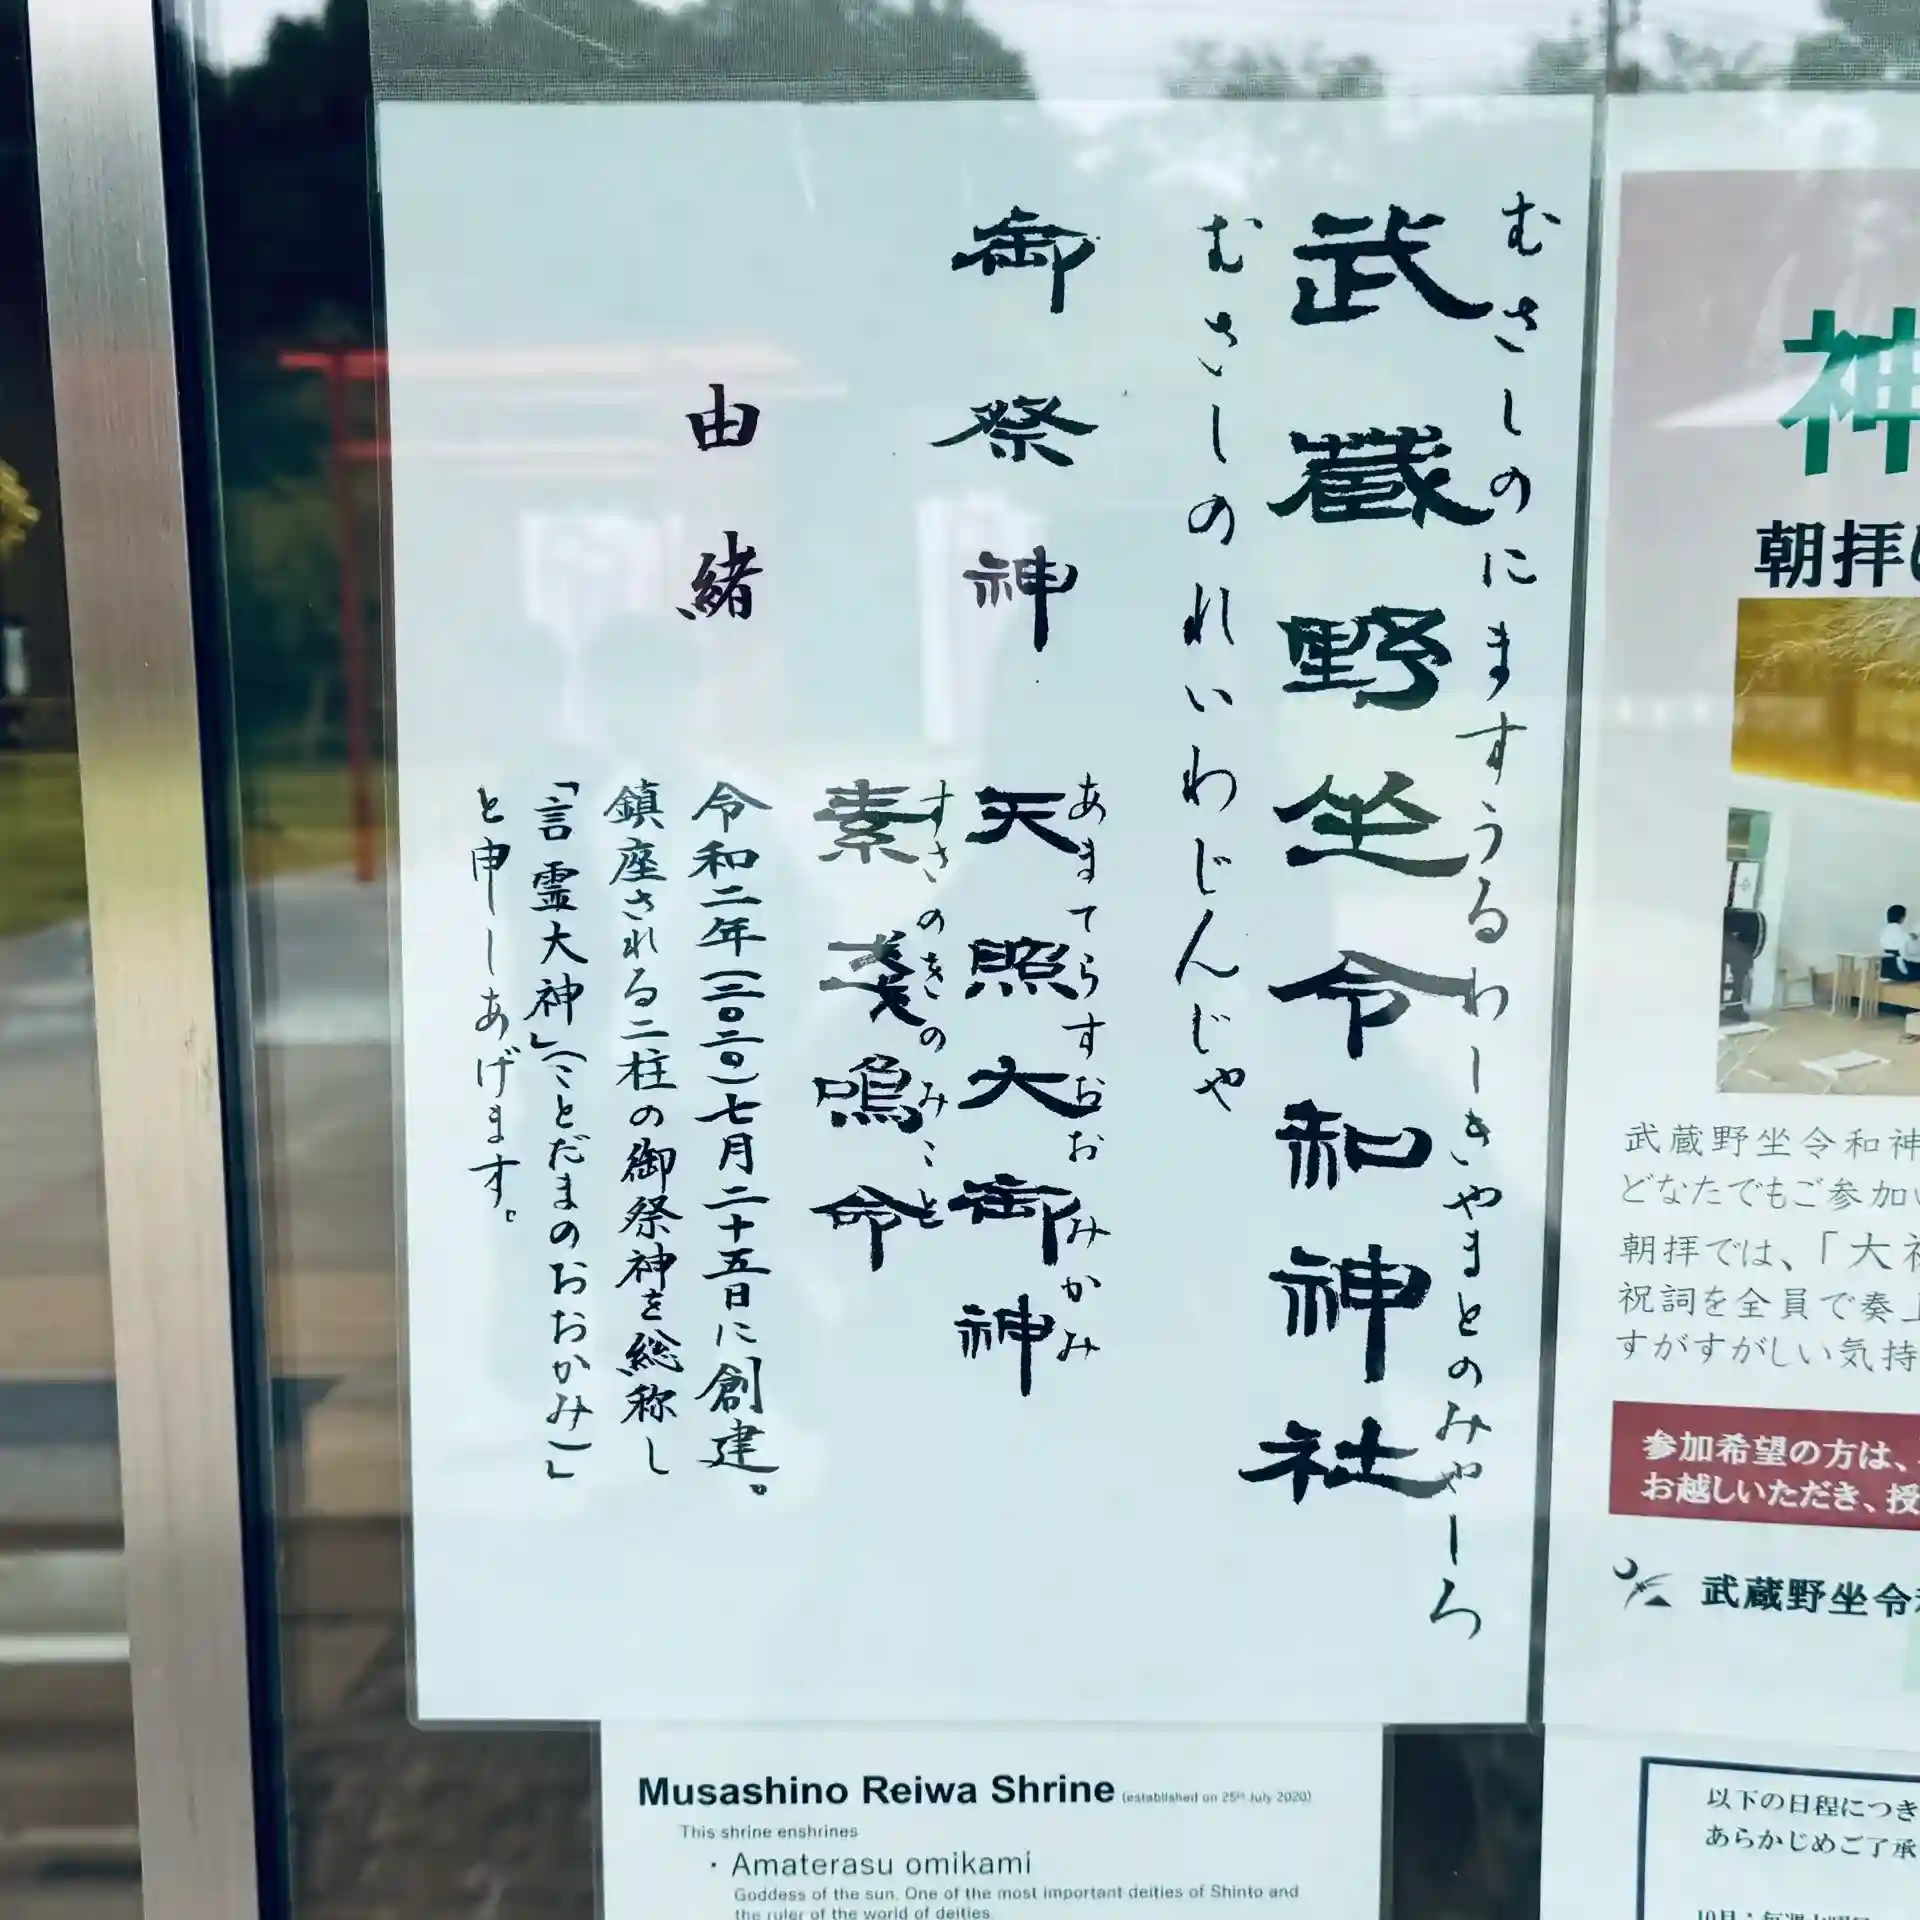 むさしのにますうるわしきやまとのみやしろ
武蔵野坐令和神社
むさしのれいわじんじゃ
御祭神
あまてらすおおみかみ
天照大御神
すさのをのみこと
素戔嗚命
由緒
令和二年(二〇二〇)七月二十五日に創建。
鎮座される二柱の御祭神を総称し
「言霊大神」(ことだまのおおかみ)」
と申しあげます。
Musashino Reiwa Shrine (established on 25th July 2020)
This shrine enshrines
・Amaterasu omikami
Goddess of the sun. One of the most important deities of Shinto and
the ruler of the world of deities.
神
朝拝
武蔵野坐令和神
どなたでもご参加
朝拝では、「大
祝詞を全員で奏
すがすがしい気持
参加希望の方は、
お越しいただき、授
武蔵野坐令
以下の日程につき
あらかじめご了承